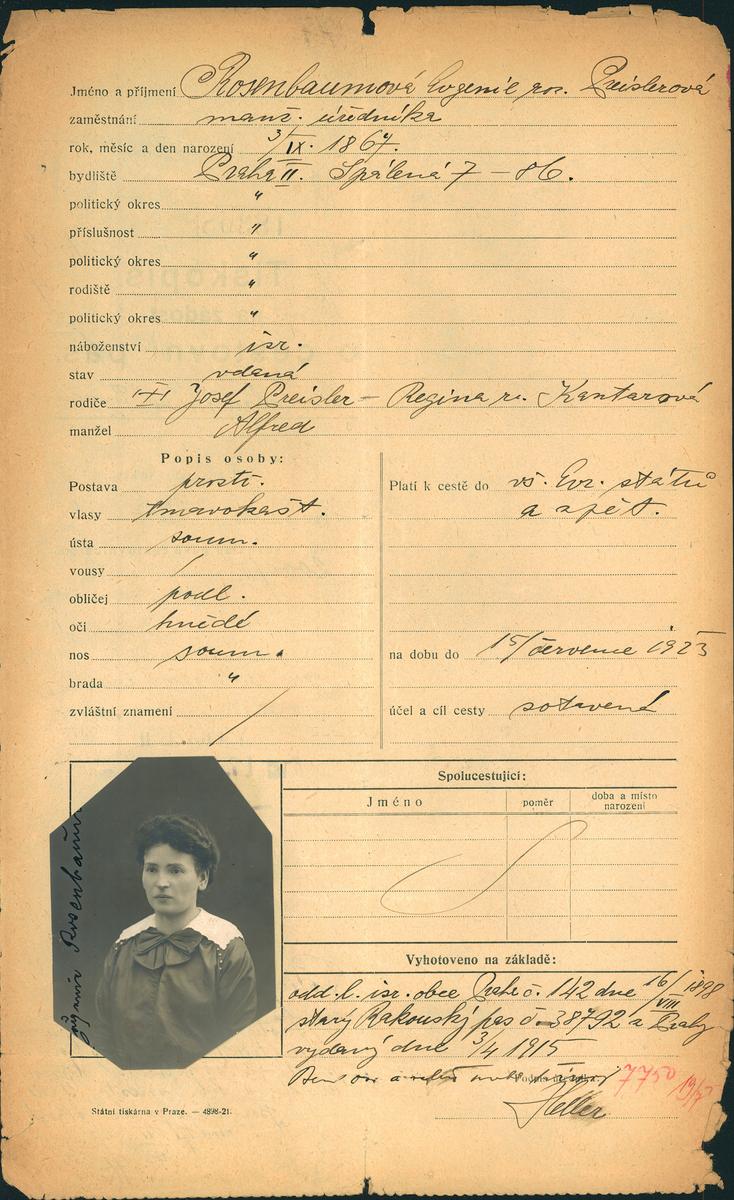 Jméno a příjmení Rosenbaumová Evgenie roz. Preislerová
zaměstnání manž. úředníka
rok, měsíc a den narození 3/IX. 1867.
bydliště Praha II. Spálená 7 – 86.
politický okres "
příslušnost "
politický okres "
rodiště "
politický okres "
náboženství isr.
stav vdaná
rodiče Josef Preisler – Regina r. Kantarová
manžel Alfred
Popis osoby:
Postava prostř.
vlasy tmavokašt.
ústa soum.
vousy /
obličej podl.
oči hnědé
nos soum.
brada "
zvláštní znamení /
Platí k cestě do vš. Evr. států
a zpět.
na dobu do 15/července 1923
účel a cíl cesty zotavená
Evgenie Rosenbaum
Spolucestující:
Jméno poměr doba a místo narození
Vyhotoveno na základě:
odd. l. isr. obce Praha č. 142 dne 16/VIII 1898
starý Rakouský pas č. 38792 a Prahy
vydaný dne 3/4 1915
7750 19/7
Heller
Státní tiskárna v Praze. — 4898-21.